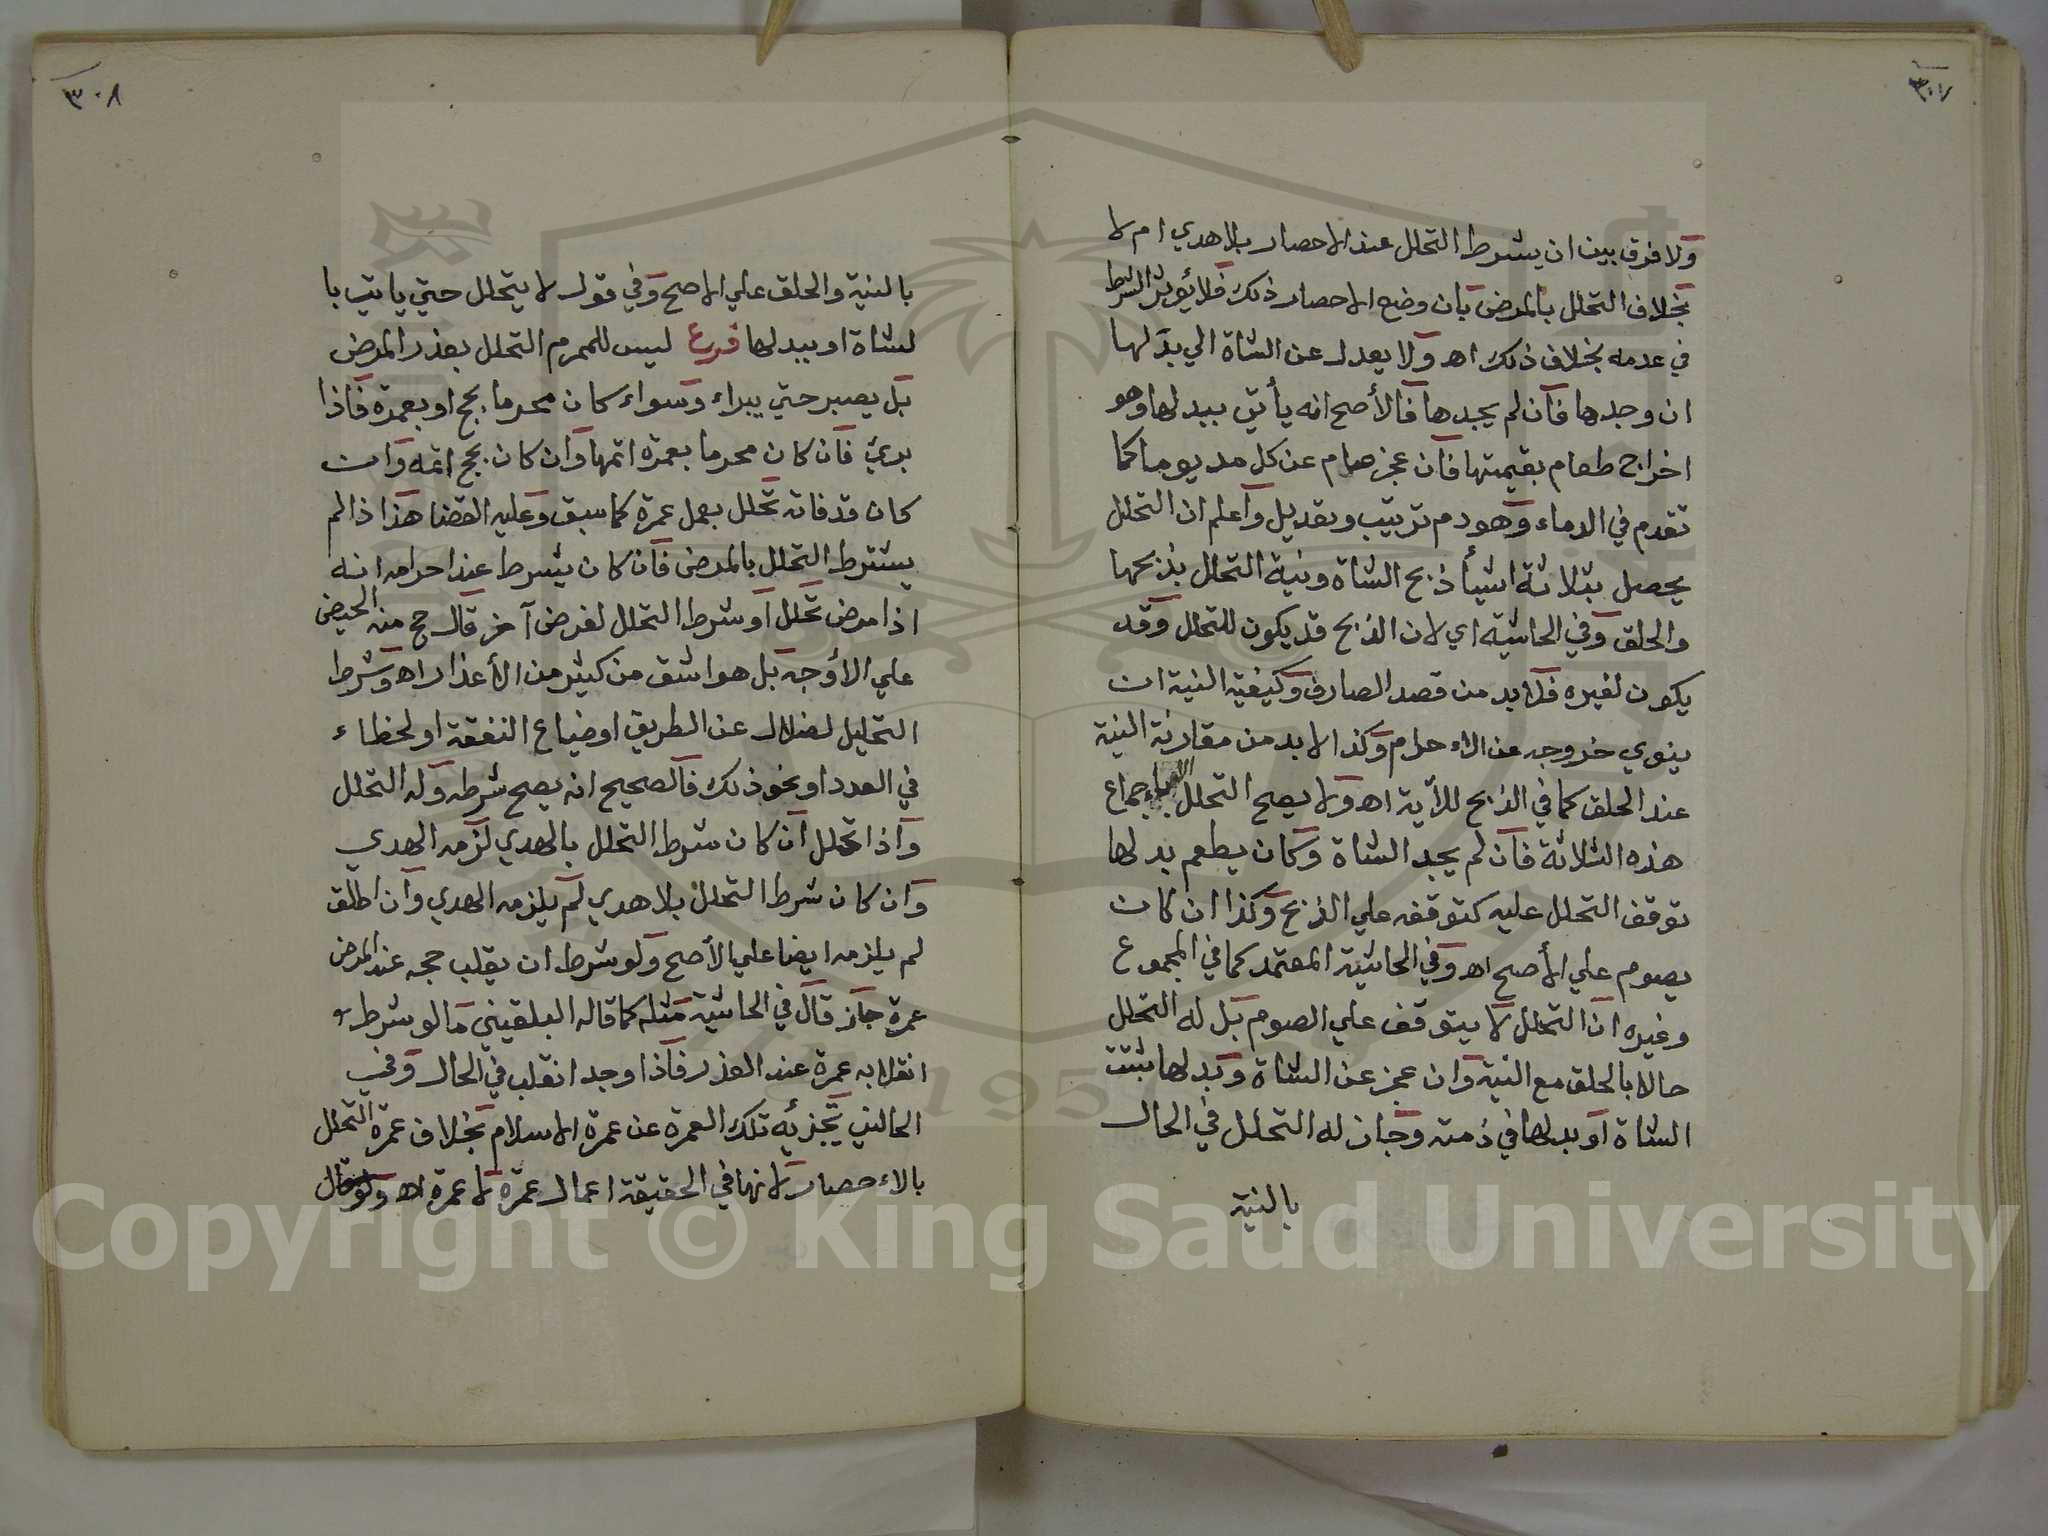 ٣٠٧
ولا فرق بين ان يشرط التحلل عند الاحصار بلا هدي ام لا
بخلاف التحلل بالمرض بان وضع الاحصار ذلك فلا يؤثر الشرط
في عدمه بخلاف ذلك اه ولا يعدل عن الشاة الي بدلها
ان وجدها فان لم يجدها فالأصح انه يأتي ببدلها وهو
اخراج طعام بقيمتها فان عجز صام عن كل مد يوما كما
تقدم في الدماء وهو دم ترتيب وتعديل واعلم ان التحلل
يحصل بثلاثة اشيأ ذبح الشاة ونية التحلل بذبحها
والحلق وفي الحاشية اي لان الذبح قد يكون للتحلل وقد
يكون لغيره فلابد من قصد الصارف وكيفية النية ان
ينوي خروجه عن الاء حرام وكذا لابد من مقارنة النية
عند الحلق كما في الذبح للآية اه ولا يصح التحلل الا باجماع
هذه الثلاثة فان لم يجد الشاة وكان يطعم بدلها
توقف التحلل عليه كتوقفه علي الذبح وكذا ان كان
يصوم علي الأصح اه وفي الحاشية المعتمد كما في المجموع
وغيره ان التحلل لا يتوقف علي الصوم بل له التحلل
حالا بالحلق مع النية وان عجز عن الشاة وبدلها ثبتت
الشاة او بدلها في ذمته وجاز له التحلل في الحال
بالنية
٣٠٨
بالنية والحلق علي الاصح وفي قول لا يتحلل حتي ياتي با
لشاة او ببدلها فرع ليس للمحرم التحلل بعذر المرض
بل يصبر حتي يبراء وسواء كان محرما بحج او بعمرة فاذا
بريئ فان كان محرما بعمرة اتمها وان كان بحج اتمه وان
كان قد فاته تحلل بعمل عمرة كما سبق وعليه القضا هذا اذا لم
يشترط التحلل بالمرض فان كان يشرط عند احرامه انه
اذا مرض تحلل او شرط التحلل لغرض آخر قال حج منه الحيض
علي الأوجه بل هو اشق من كثير من الأعذار اه وشرط
التحليل لضلال عن الطريق او ضياع النفقة او لخطاء
في العدد او نحو ذلك فالصحيح انه يصح شرطه وله التحلل
واذا تحلل ان كان شرط التحلل بالهدي لزمه الهدي
وان كان شرط التحلل بلا هدي لم يلزمه الهدي وان اطلق
لم يلزمه ايضا علي الأصح ولو شرط ان يقلب حجه عند المرض
عمرة جاز قال في الحاشية مثله كما قاله البلقيني ما لو شرط
انقلابه عمرة عند العذر فاذا وجد انقلب في الحال وفي
الحالين تجزئه تلك العمرة عن عمرة الاسلام بخلاف عمرة التحلل
بالاء حصار لانها في الحقيقة اعمال عمرة لا عمرة اه ولو قال
Copyright © King Saud University
1957